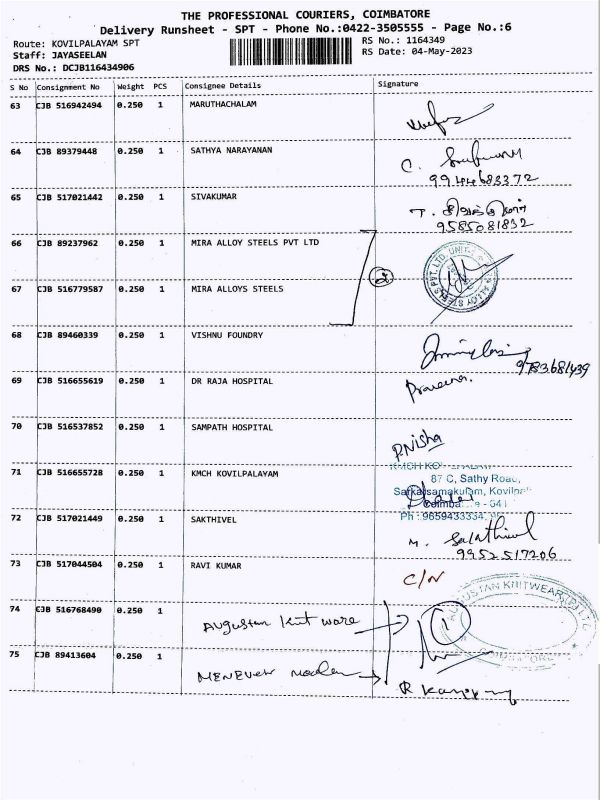 THE PROFESSIONAL COURIERS, COIMBATORE
Delivery Runsheet - SPT - Phone No.:0422-3505555 - Page No.:6
Route: KOVILPALAYAM SPT
Staff: JAYASEELAN
DRS No.: DCJB116434906
RS No.: 1164349
RS Date: 04-May-2023
S No Consignment No Weight PCS Consignee Details Signature
63 CJB 516942494 0.250 1 MARUTHACHALAM
64 CJB 89379448 0.250 1 SATHYA NARAYANAN
9944683372
65 CJB 517021442 0.250 1 SIVAKUMAR
9585081832
66 CJB 89237962 0.250 1 MIRA ALLOY STEELS PVT LTD
67 CJB 516779587 0.250 1 MIRA ALLOYS STEELS
2
68 CJB 89460339 0.250 1 VISHNU FOUNDRY
9783681439
69 CJB 516655619 0.250 1 DR RAJA HOSPITAL
Praveena.
70 CJB 516537852 0.250 1 SAMPATH HOSPITAL
P.Nisha
71 CJB 516655728 0.250 1 KMCH KOVILPALAYAM
87 C, Sathy Road,
Ph : 9659433334,
72 CJB 517021449 0.250 1 SAKTHIVEL
M. Sakthivel
9952517206
73 CJB 517044504 0.250 1 RAVI KUMAR
C/N
74 CJB 516768490 0.250 1
Augustan Knit ware
1
AUGUSTAN KNITWEAR (P) LTD
COIMBATORE
75 CJB 89413604 0.250 1